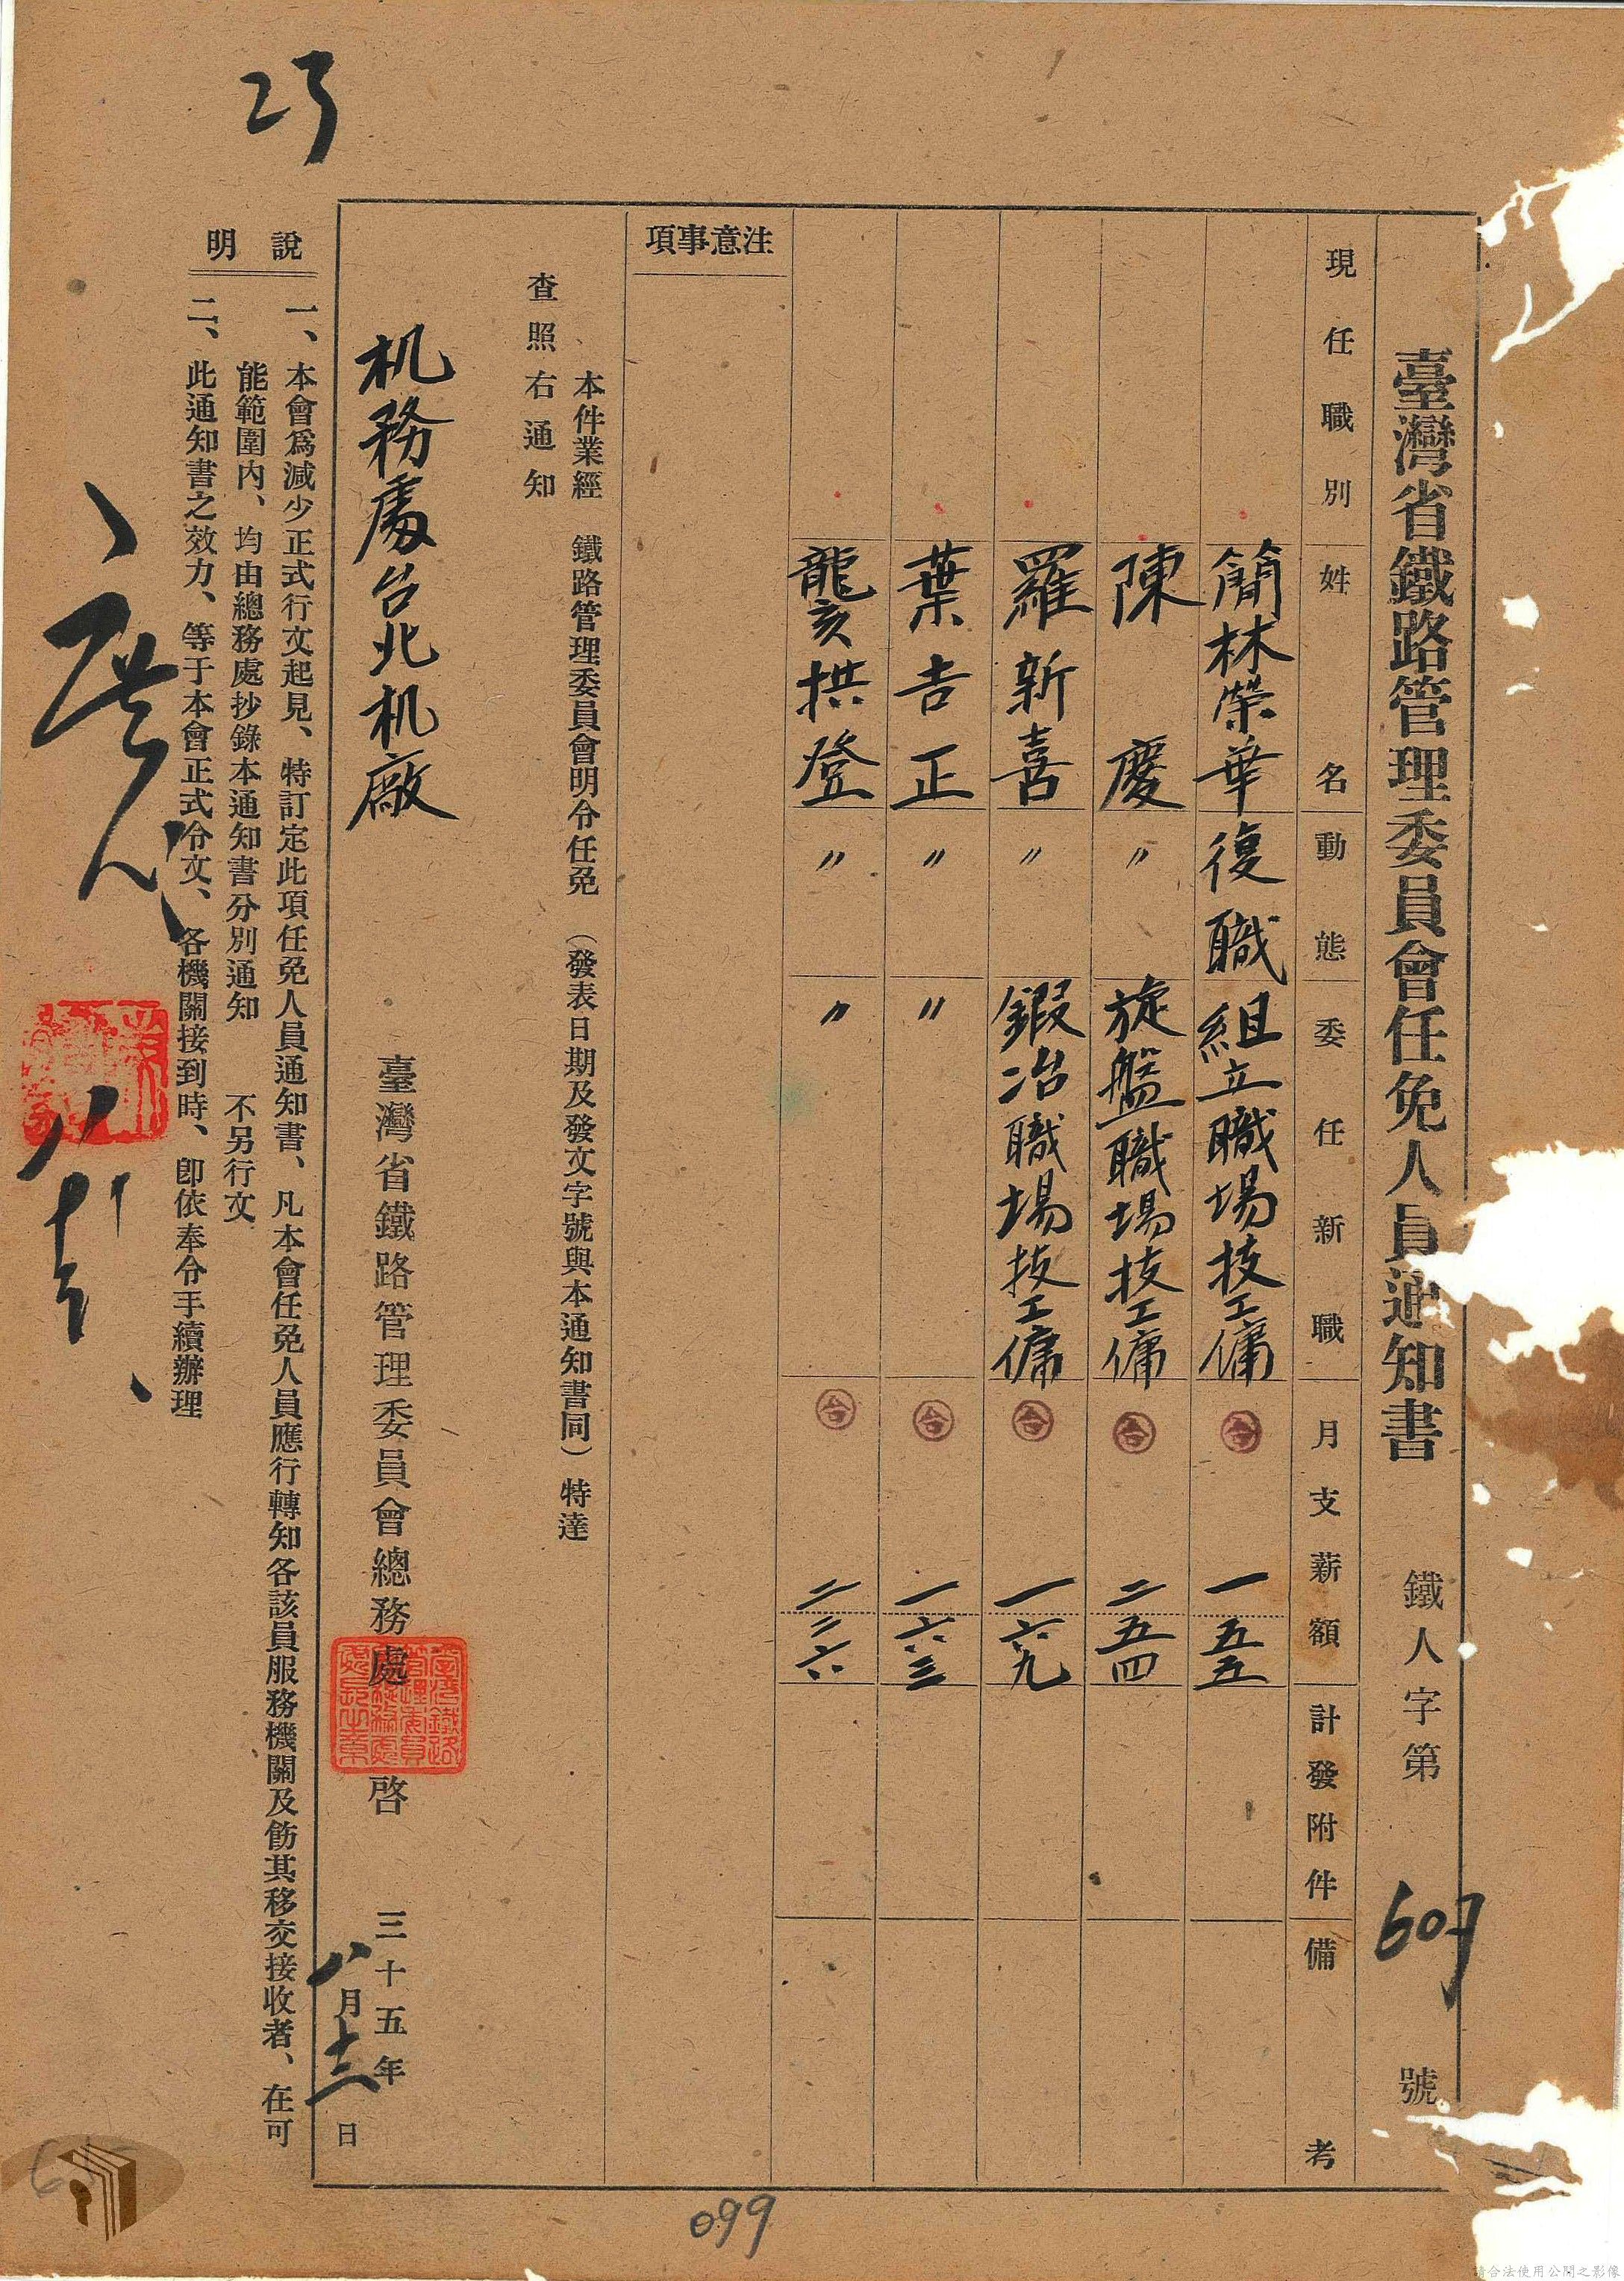 臺灣省鐵路管理委員會任免人員通知書 鐵人字第607號
現任職別 姓名 動態 委任新職 月支薪額 計發附件 備考
簡林榮華 復職 組立職場技工傭 台 一五五
陳慶 〃 旋盤職場技工傭 台 二五四
羅新喜 〃 鍜冶職場技工傭 台 一六九
葉吉正 〃 〃 台 一六三
拱登 〃 〃 台 二二六
注意事項
本件業經 鐵路管理委員會明令任免(發表日期及發文字號與本通知書同)特達
查照右通知
机務處台北机廠
臺灣省鐵路管理委員會總務處啓 三十五年
八月十二日
說明
一、本會爲減少正式行文起見、特訂定此項任免人員通知書、凡本會任免人員應行轉知各該員服務機關及飭其移交接收者、在可
能範圍內、均由總務處抄錄本通知書分別通知 不另行文
二、此通知書之效力、等于本會正式令文、各機關接到時、卽依奉令手續辦理
099
請合法使用公開之影像